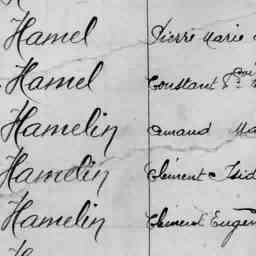 Hamel Pierre Marie
Hamel Constant
Hamelin Amand
Hamelin Clément Isid
Hamelin Clément Eugèn